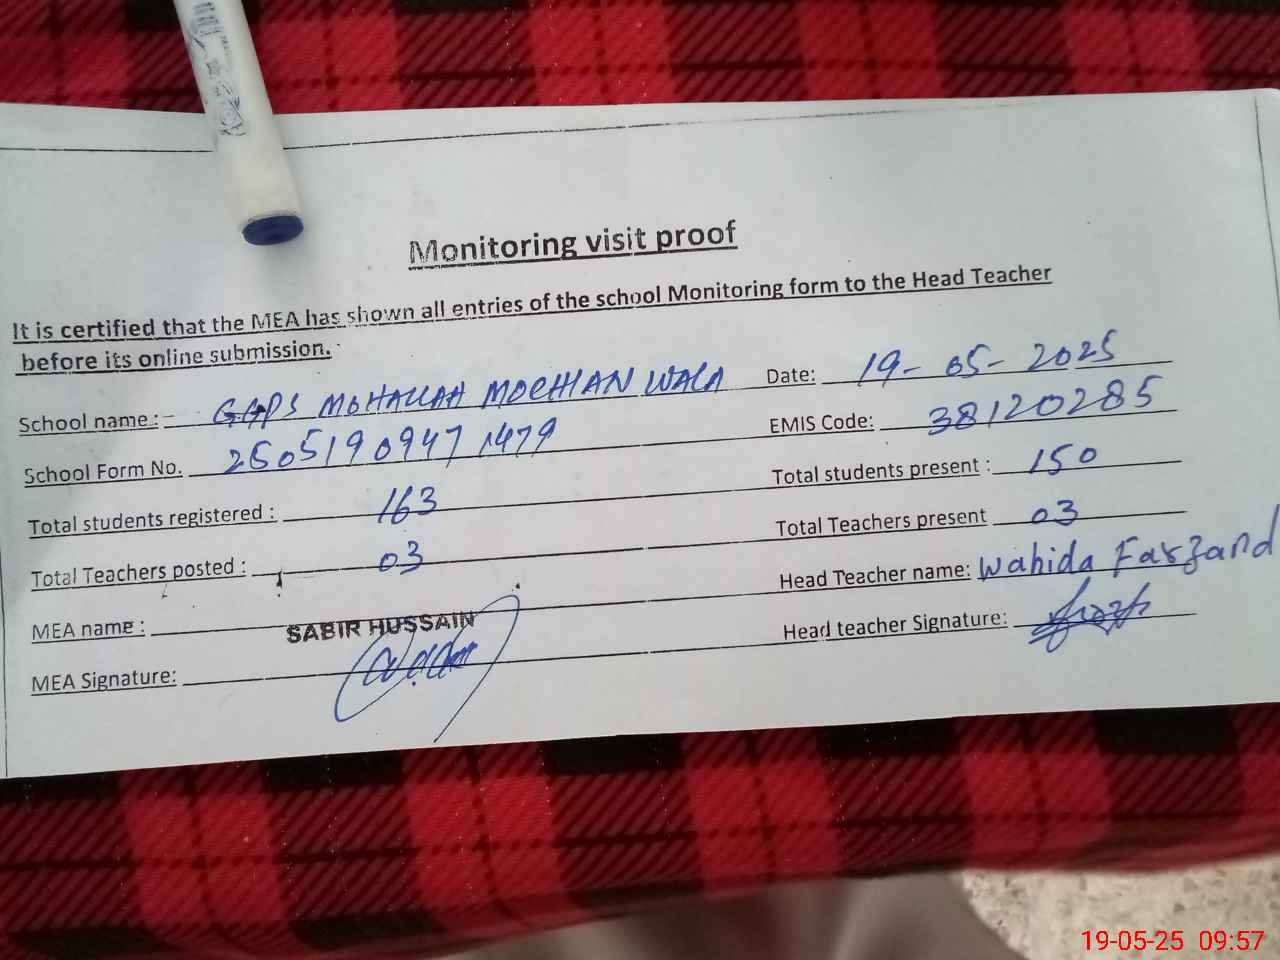 Monitoring visit proof
It is certified that the MEA has shown all entries of the school Monitoring form to the Head Teacher
before its online submission.
School name : - GGPS MOHALLAH MOCHIAN WALA Date: 19-05-2025
School Form No. 25051909471479 EMIS Code: 38120285
Total students registered : 163 Total students present : 150
Total Teachers posted : 03 Total Teachers present 03
MEA name : SABIR HUSSAIN Head Teacher name: Wahida Farzand
MEA Signature: Head teacher Signature:
19-05-25 09:57